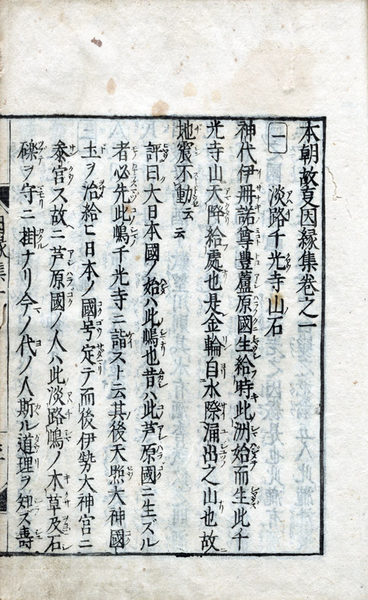 本朝故事因縁集巻之一
一 淡路千光寺山石
神代伊冊諾尊豊蘆原國生給時此洲始而生此千
光寺山天降給處也是金輪自水際涌出之山也故
地震不動云云
評曰大日本國ノ始ハ此嶋也昔ハ此芦原國ニ生ズル
者必先此嶋千光寺ニ詣スト云其後天照大神國
土ヲ治給ヒ日本ノ國号定テ而後伊勢大神宮ニ
参宮ス故ニ芦原國ノ人ハ此淡路嶋ノ木草及石
礫ヲ守ニ掛ナリ今ノ代ノ人斯ル道理ヲ知ズ壽